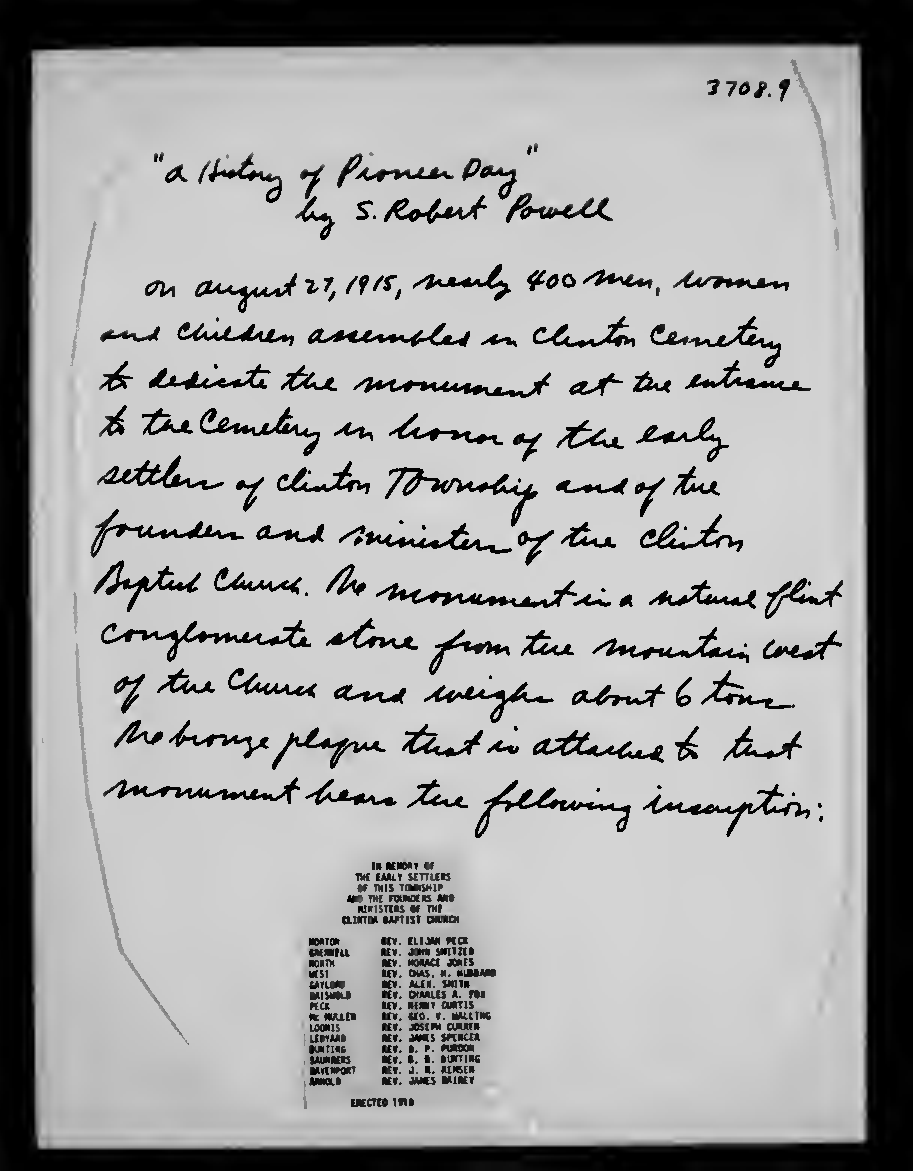 3708.9
"A History of Pioneer Day"
by S. Robert Powell
On August 27, 1915, nearly 400 men, women
and children assembled in Clinton Cemetery
to dedicate the monument at the entrance
to the Cemetery in honor of the early
settlers of Clinton Township and of the
founders and ministers of the Clinton
Baptist Church. The monument is a natural flint
conglomerate stone from the mountain west
of the Church and weighs about 6 tons.
The bronze plaque that is attached to that
monument bears the following inscription:
IN MEMORY OF
THE EARLY SETTLERS
OF THIS TOWNSHIP
AND THE FOUNDERS AND
MINISTERS OF THE
CLINTON BAPTIST CHURCH
NORTON REV. ELIJAH PECK
GRENNELL REV. JOHN SMITZER
NORTH REV. HORACE JONES
WEST REV. CHAS. H. HUBBARD
GAYLORD REV. ALEX. SMITH
GRISWOLD REV. CHARLES A. FOX
PECK REV. HENRY CURTIS
Mc MULLEN REV. GEO. V. WALLING
LOOMIS REV. JOSEPH CURREN
LEDYARD REV. JAMES SPENCER
BUNTING REV. PURDON
SAUNDERS REV. BUNTING
DAVENPORT REV. KEMSER
ARNOLD REV. JAMES RAINEY
ERECTED